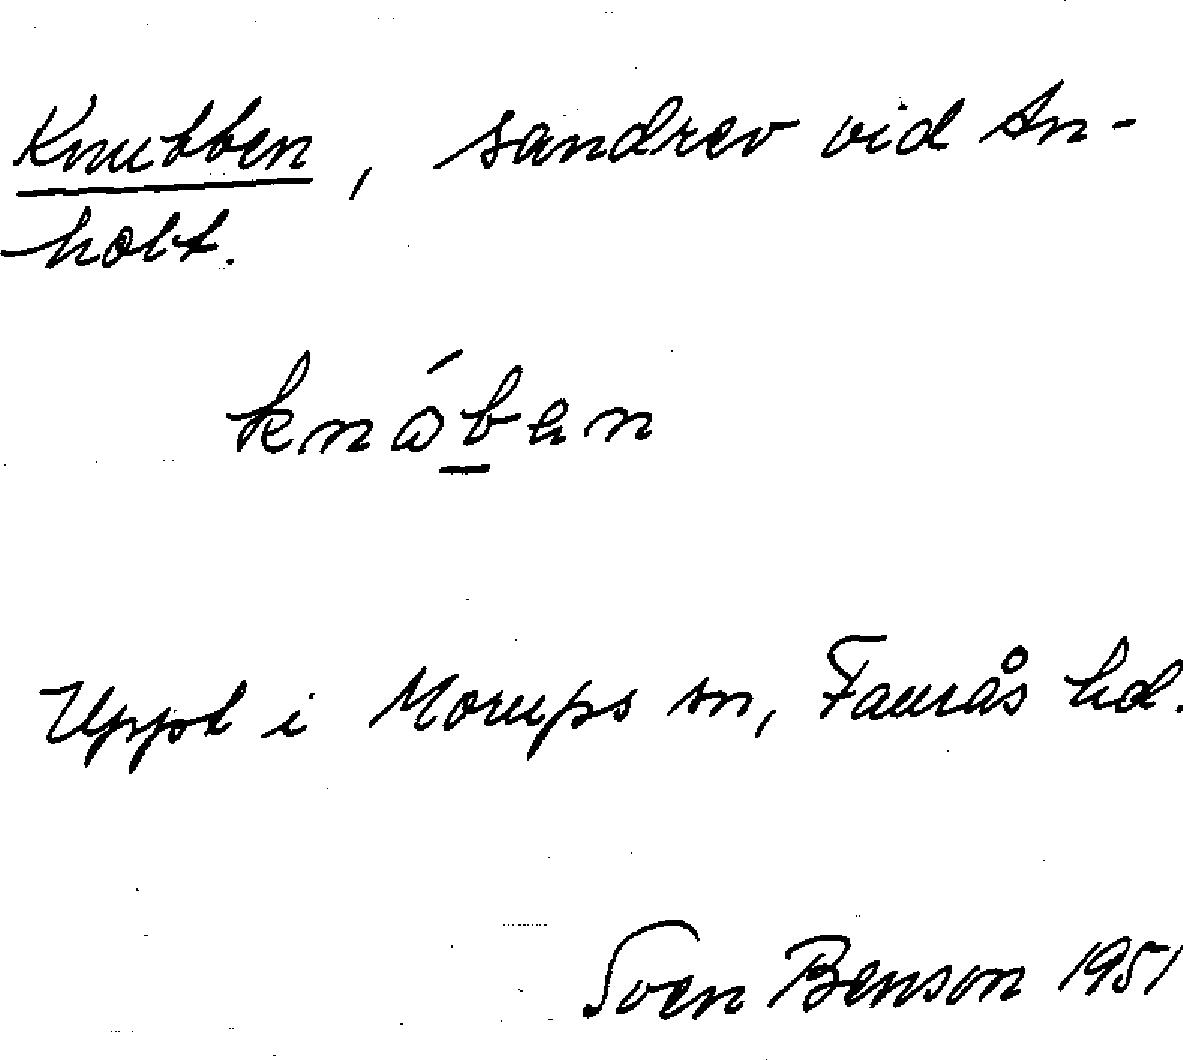 Knubben, sandrev vid An-
holt.
knáb̲ən
Uppt i Morups sn, Faurås hd.
Sven Benson 1951